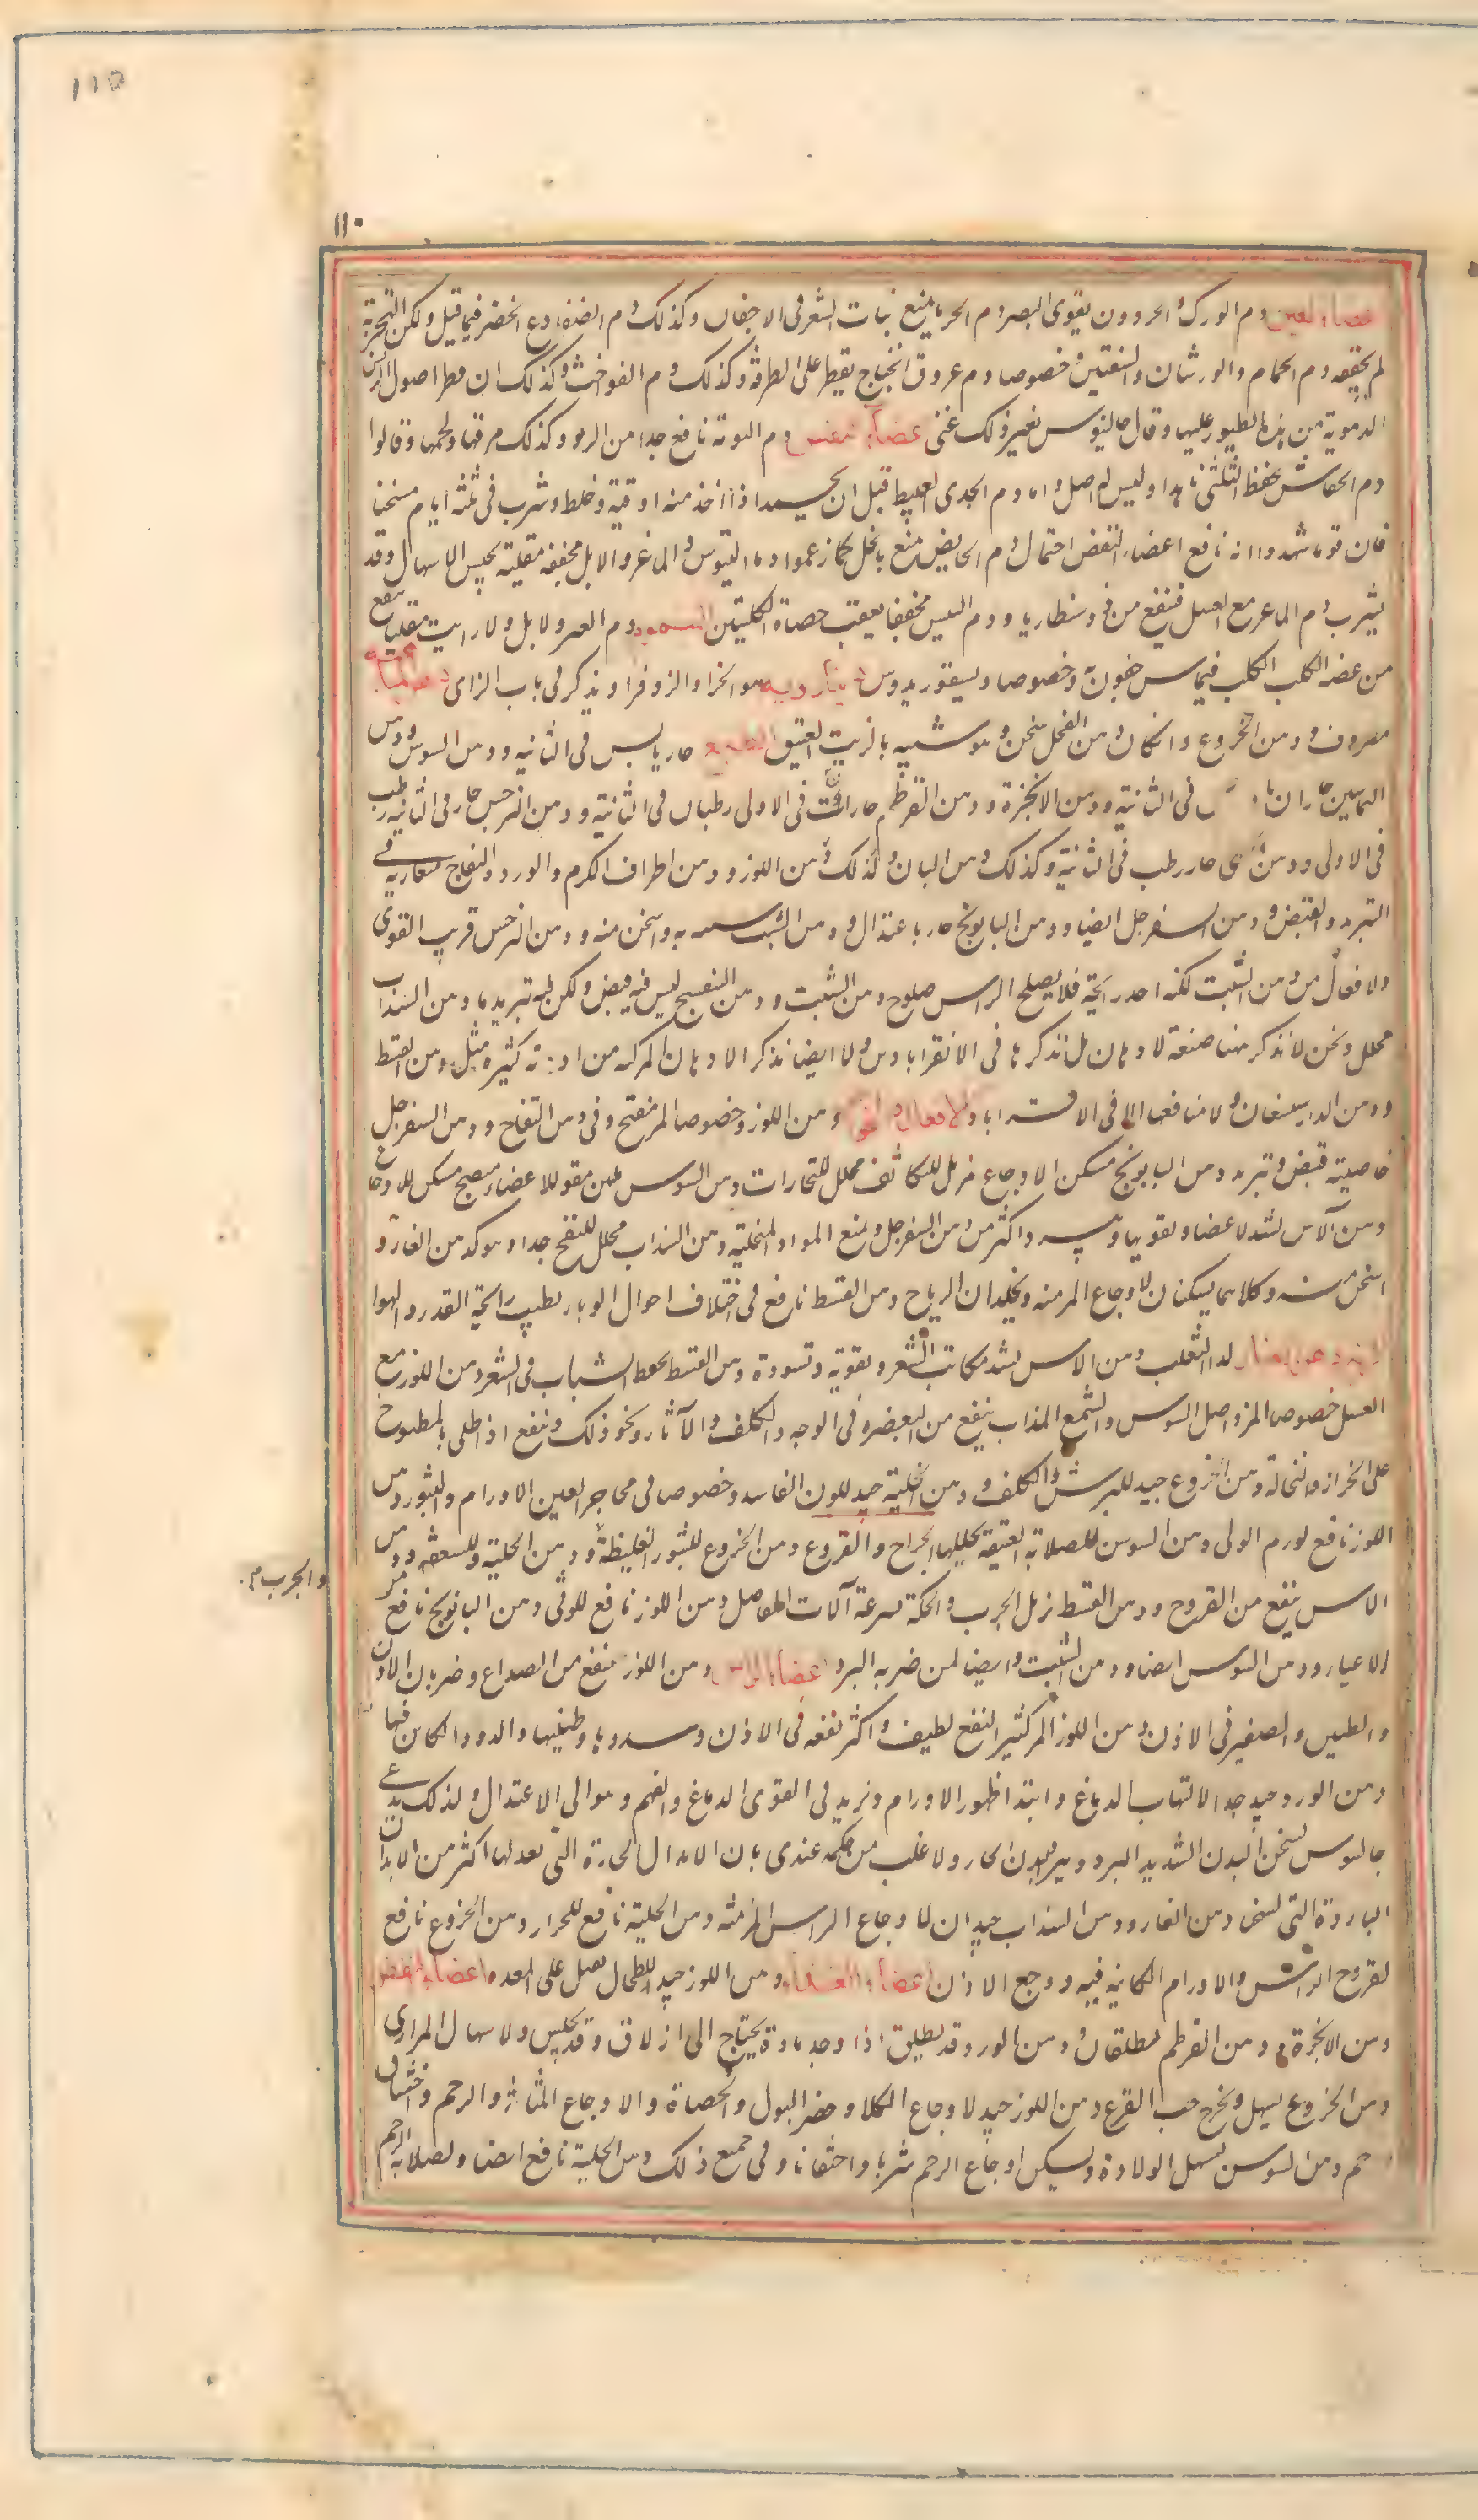 110
١١٠
اعضاء العين دم الورك والحردون يقوى البصر ودم الحربا يمنع نبات الشعر فى الاجفان وكذلك دم الضفادع الخضر فيما قيل ولكن التجربة
لم يحققه ودم الحمام والورشان والشفنين وخصوصا دم عروق الجناح يقطر على الطرفة وكذلك دم الفواخت وكذلك ان قطر اصول الريش
الدموية من هذه الطيور عليها وقال جالينوس بغير ذلك غنى اعضاء النفس دم البومة نافع جدا من الربو وكذلك مرقها ولحمها وقالوا
دم الخفاش يحفظ الثدى ناهدا وليس له اصل واما دم الجدى العبيط قبل ان يجمد اذا اخذ منه اوقية وخلط وشرب فى ثلثة ايام مسخنا
فان قوما شهدوا انه نافع اعضاء النفض احتمال دم الحايض يمنع بالحبل كما زعموا ودما التيوس والماعز والايل مجففة مقلية يحبس الاسهال وقد
يشرب دم الماعز مع العسل فينفع من دوسنطاريا ودم التيس مجففا يعقب حصاة الكليتين السموم دم العنز والايل والارانب مقليا ينفع
من عضه الكلب الكلب فيما وخصوصا دينارويه هو الحزا والزوفرا ويذكر فى باب الزاى
معروف ودهن الخروع والكان من الفجل يسخن وهو شبيه بالزيت العتيق الطبع حار يابس فى الثانية ودهن السوس ودهن
الياسمين حاران فى الثانية ودهن الانجزة ودهن القرطم حاران فى الاولى رطبان فى الثانية ودهن النرجس حار فى الثانية رطب
فى الاولى ودهن حار رطب فى الثانية وكذلك دهن البان وكذلك دهن اللوز ودهن اطراف الكرم والورد والتفاح متقاربة فى
التبريد والقبض ودهن السفرجل ايضا ودهن البابونج حار باعتدال ودهن الشبت شبيه به واسخن منه ودهن النرجس قريب القوى
والافعال من دهن الشبت لكنه احد رايحة فلا يصلح الراس صلوح دهن الشبت ودهن البنفسج ليس فيه قبض ولكن فيه تبريد ما ودهن السذاب
محلل ونحن لا نذكر ههنا صنعة الادهان بل نذكرها فى الاقراباذين ولا ايضا نذكر الادهان المركبة من ادوية كثيرة مثل دهن القسط
ودهن الدارشيشعان ولا منافعها الا فى الاقراباذ الافعال والخواص دهن اللوز وخصوصا المر مفتح وفى دهن التفاح ودهن السفرجل
خاصية قبض وتبريد ودهن البابونج مسكن الاوجاع مزيل للتكاثف محلل للبخارات ودهن السوس ملين مقو للاعضاء منضج مسكن للاوجاع
ودهن الآس يشد الاعضا ويقويها اكثر من دهن السفرجل ويمنع المواد المتحلبة ودهن السذاب محلل للنفخ جدا وهو كدهن الغار و
اسخن منه وكلاهما يسكنان الاوجاع المزمنة ويحللان الرياح ودهن القسط نافع فى اختلاف احوال الوباء يطيب رايحة القدر والهوا
الزينة دهن الغار لداء الثعلب ودهن الاس يشد منابت الشعر ويقويه وتسوده ودهن القسط يحفظ الشباب فى الشعر ودهن اللوز مع
العسل خصوصا المر واصل السوس والشمع المذاب ينفع من الغضون فى الوجه والكلف والآثار ونحو ذلك وينفع اذا طلى بالمطبوخ
على الحزاز والنخالة ودهن الخروع جيد للبرش والكلف ودهن الحلبة جيد للون الفاسد وخصوصا فى محاجر العين الاورام والبثور دهن
اللوز نافع لورم الوثى ودهن السوسن للصلابة العتيقة يحللها الجراح والقروح ودهن الخروع للبثور الغليظة ودهن الحلبة للسعفه ودهن
الاس ينفع من القروح ودهن القسط يزيل الجرب والحكة بسرعة آلات المفاصل دهن اللوز نافع للوثى ودهن البابونج نافع من
والجرب م
الاعيا ودهن السوس ايضا ودهن الشبت وايضا لمن ضربه البرد اعضاء الراس دهن اللوز ينفع من الصداع وضربان الاذن
والطنين والصفير فى الاذن ودهن اللوز المر كثير النفع لطيف واكثر نفعه فى الاذن وسددها وطنينها والدود الكاين فيها
ودهن الورد جيد جدا لالتهاب الدماغ وابتدا ظهور الاورام ويزيد فى القوى الدماغ والفهم وهو الى الاعتدال ولذلك يدعى
جالينوس يسخن البدن الشديد البرد ويبرد البدن الحار والاغلب من حكمه عندى بان الابدان الحارة التى تعدلها اكثر من الابدان
الباردة التى تسخنها ودهن الغار ودهن السذاب جيدان لاوجاع الراس المزمنة ودهن الحلبة نافع للحزاز ودهن الخروع نافع
لقروح الراس والاورام الكاينة فيه ووجع الاذن اعضاء الغذاء دهن اللوز جيد للطحال ثقيل على المعده اعضاء النفض
دهن الانجرة ودهن القرطم مطلقان ودهن الورد قد يطلق اذا وجد مادة يحتاج الى ازلاق وقد يحبس الاسهال المرارى
ودهن الخروع يسهل ويخرج حب القرع ودهن اللوز جيد لاوجاع الكلا وحصر البول والحصاة والاوجاع المثانة والرحم واختناق
الرحم ودهن السوسن يسهل الولادة ويسكن اوجاع الرحم شربا واحتقانا وفى جميع ذلك دهن الحلبة نافع ايضا ولصلابة الرحم